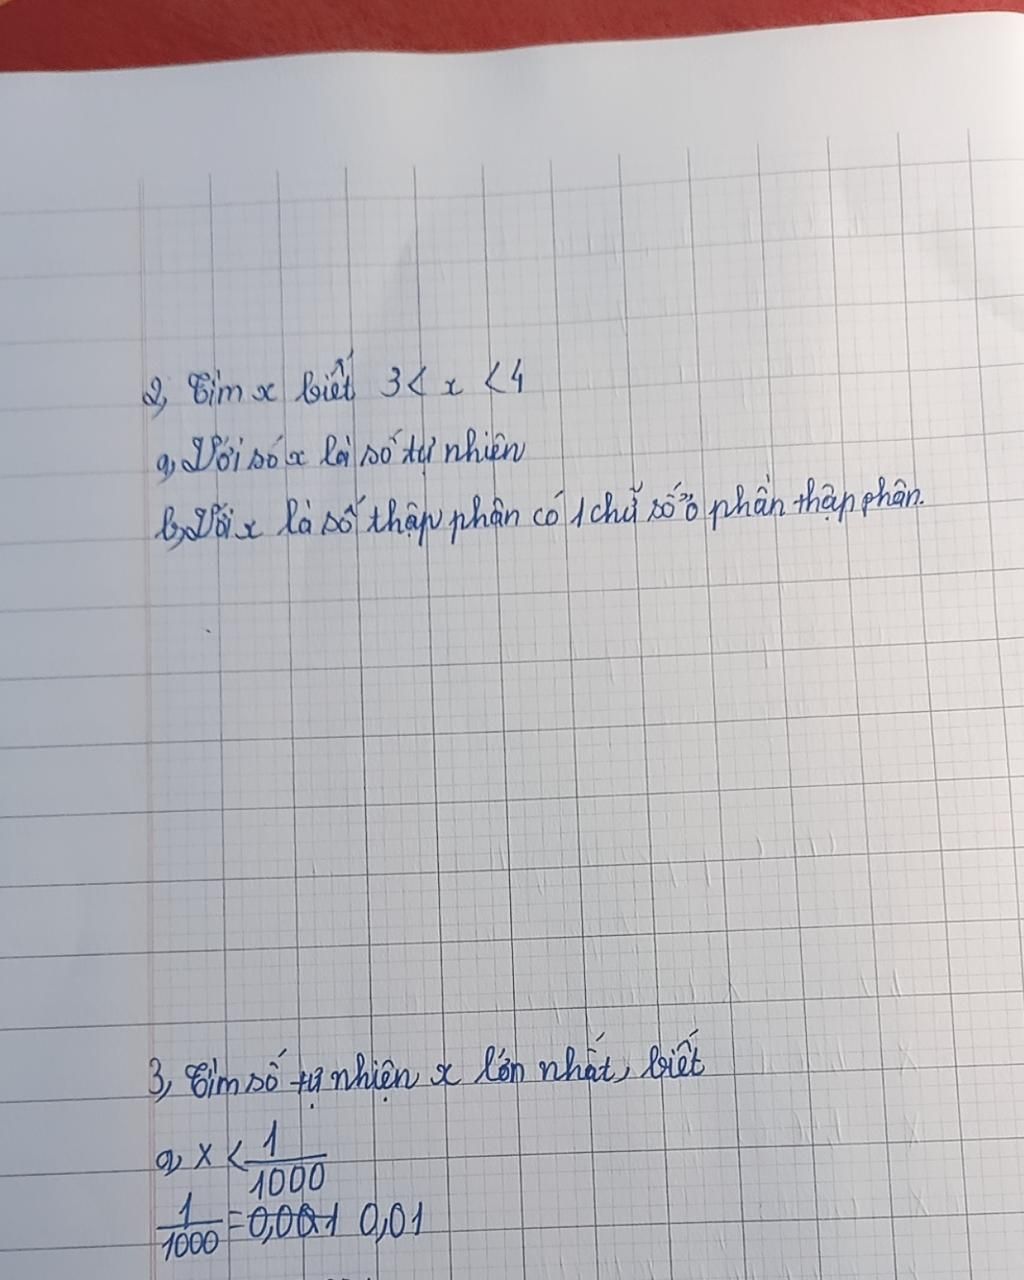 2, Tìm x biết 3 < x < 4
a, Với số x là số tự nhiên
b, Với x là số thập phân có 1 chữ số ở phần thập phân.
3, Tìm số tự nhiện x lớn nhất, biết
a, x < 1/1000
1/1000 = 0,001 0,01